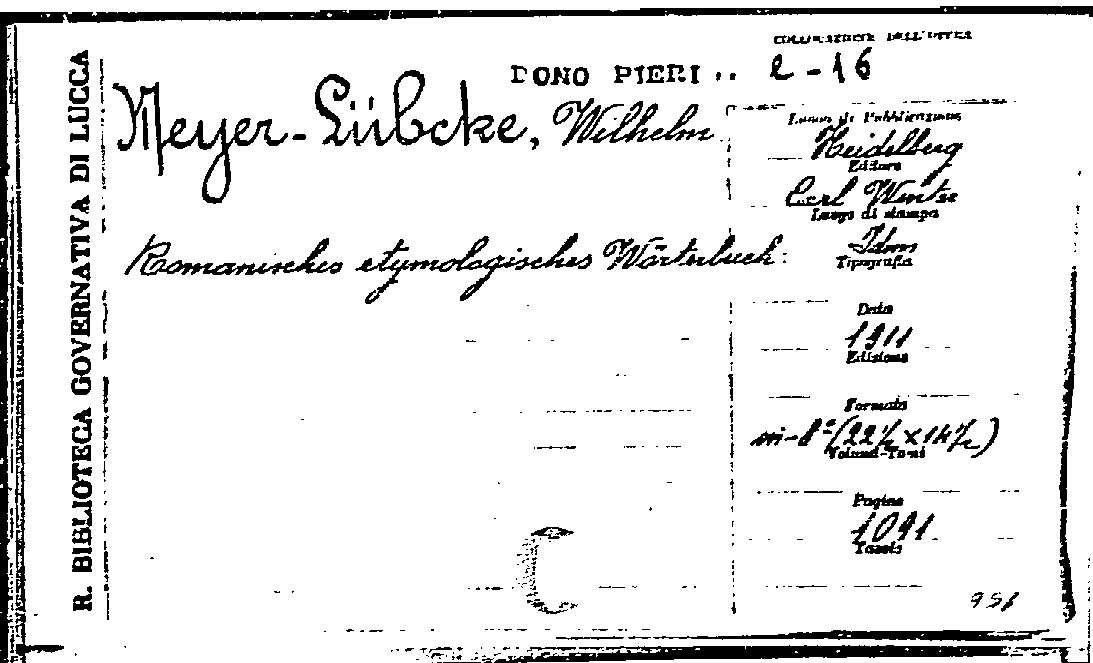 R. BIBLIOTECA GOVERNATIVA DI LUCCA
COLLOCAZIONE DELL'OPERA
DONO PIERI .. e-16
Meyer-Lübcke, Wilhelm
Romanisches etymologisches Wörterbuch.
Luogo di Pubblicazione
Heidelberg
Editore
Carl Winter
Luogo di stampa
Idem
Tipografia
Data
1911
Edizione
Formato
in-8º (22½ × 14½)
Volumi-Tomi
Pagine
1091
Tavole
C